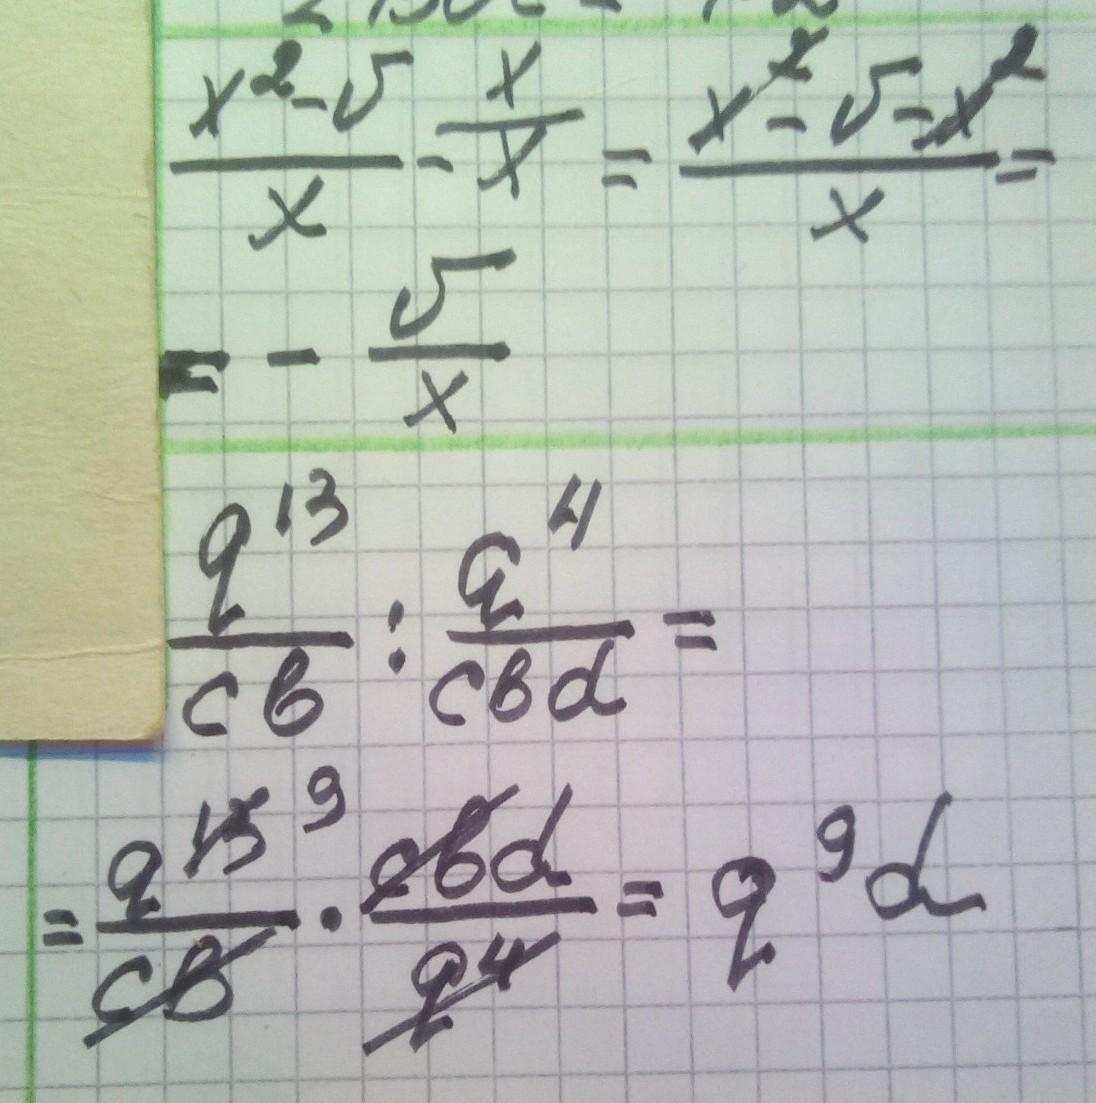 x²-5/x - x/x = x²-5-x²/x =
= - 5/x
q¹³/cb : q⁴/cbd =
= q¹³ ⁹/cb · cbd/q⁴ = q⁹d